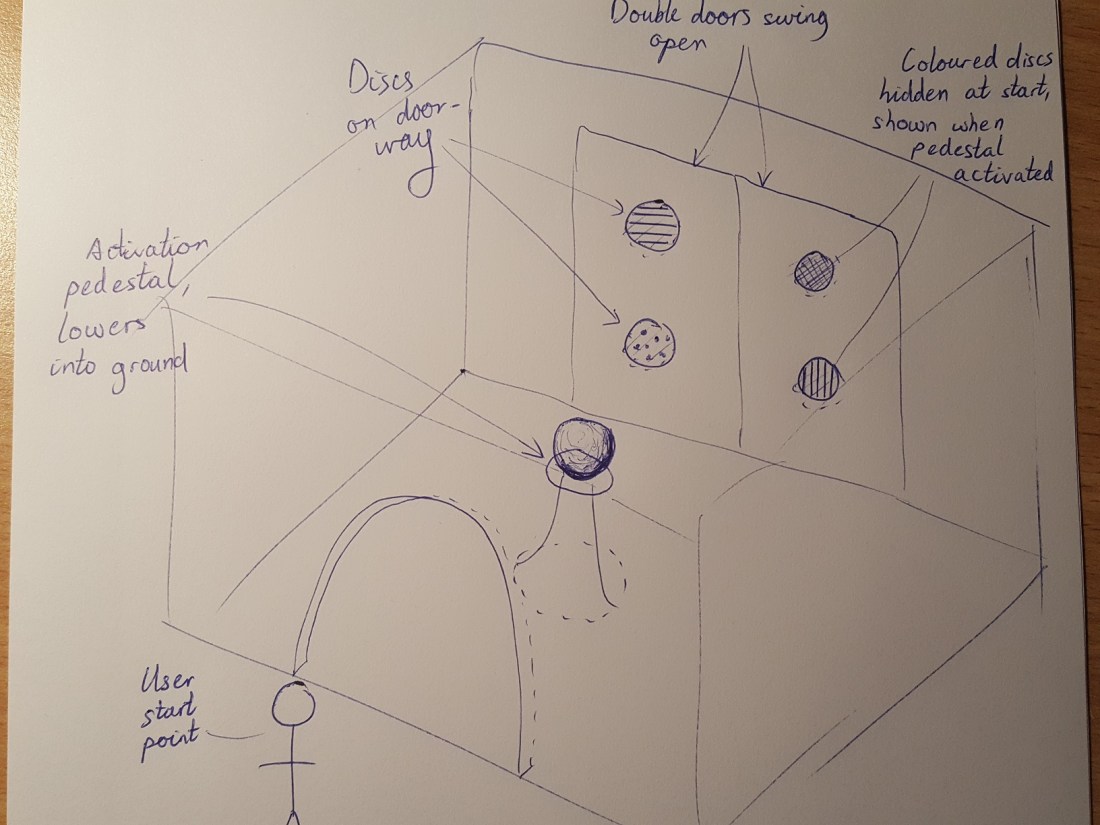 Double doors swing
open
Discs
on door-
way
Coloured discs
hidden at start,
shown when
pedestal
activated
Activation
pedestal,
lowers
into ground
User
start
point